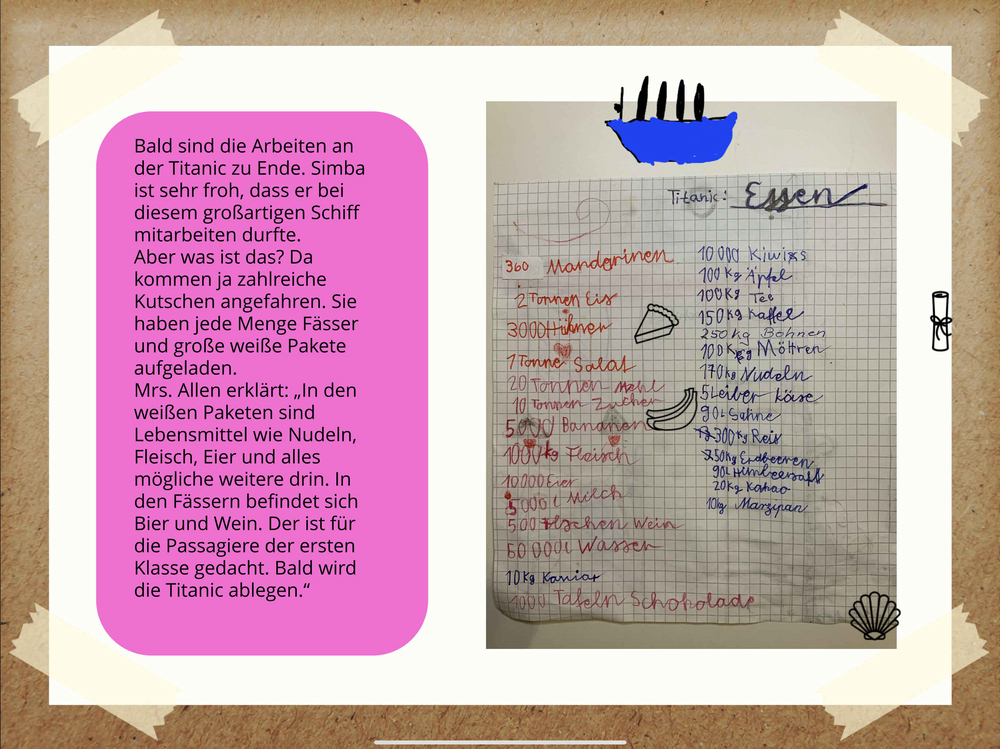 Bald sind die Arbeiten an
der Titanic zu Ende. Simba
ist sehr froh, dass er bei
diesem großartigen Schiff
mitarbeiten durfte.
Aber was ist das? Da
kommen ja zahlreiche
Kutschen angefahren. Sie
haben jede Menge Fässer
und große weiße Pakete
aufgeladen.
Mrs. Allen erklärt: „In den
weißen Paketen sind
Lebensmittel wie Nudeln,
Fleisch, Eier und alles
mögliche weitere drin. In
den Fässern befindet sich
Bier und Wein. Der ist für
die Passagiere der ersten
Klasse gedacht. Bald wird
die Titanic ablegen.“
Titanic: Essen
360 Mandarinen
2 Tonnen Eis
3000 Hühner
1 Tonne Salat
20 Tonnen Mehl
10 Tonnen Zucker
5000 Bananen
1000 kg Fleisch
10000 Eier
5000 l Milch
500 Flschen Wein
60 000 l Wasser
10 Kg Kaviar
4000 Tafeln Schoholade
10 000 Kiwiss
100 Kg Äpfel
100 Kg Tee
150 Kg Kaffee
250 kg Bohnen
100 Kg Möhren
170 kg Nudeln
5 Leiber Käse
90 L Sahne
300 Kg Reis
750 Kg Erdbeeren
90 L Himbeersaft
20 Kg Kakao
10 kg Marzipan